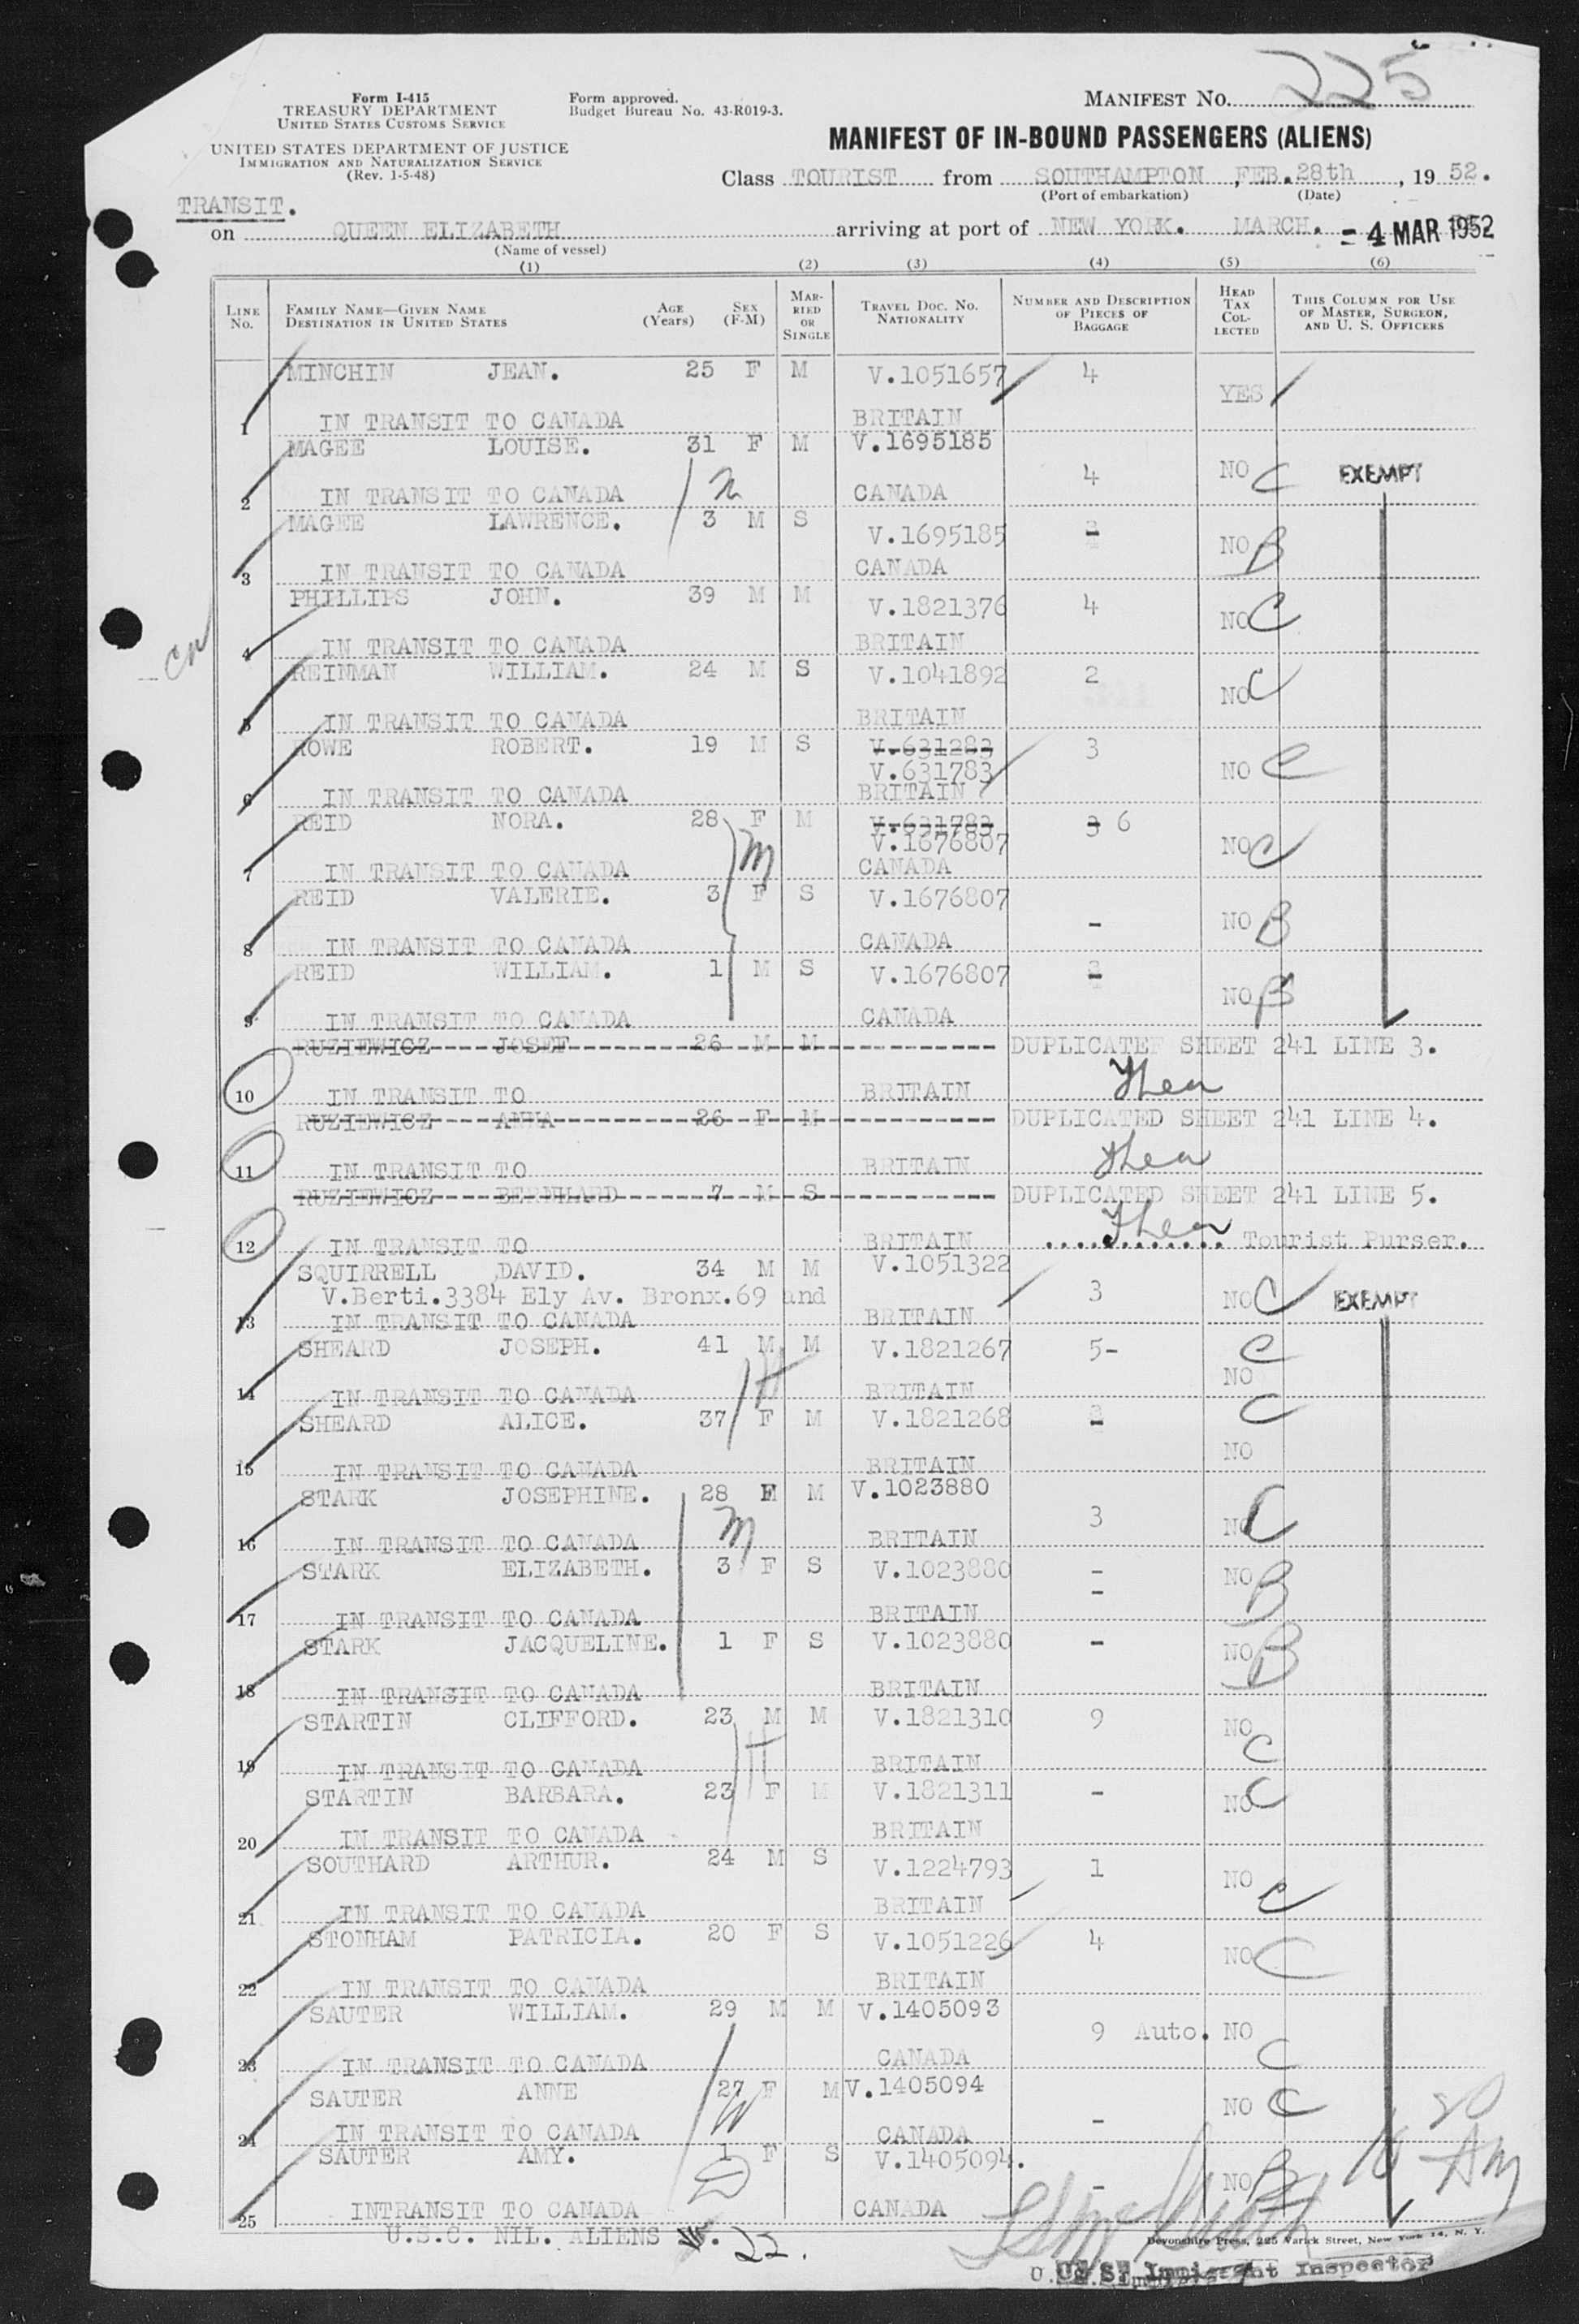 225
Form I-415
TREASURY DEPARTMENT
UNITED STATES CUSTOMS SERVICE
UNITED STATES DEPARTMENT OF JUSTICE
IMMIGRATION AND NATURALIZATION SERVICE
(Rev. 1-5-48)
Form approved.
Budget Bureau No. 43-R019-3.
MANIFEST NO.
MANIFEST OF IN-BOUND PASSENGERS (ALIENS)
Class TOURIST from SOUTHAMPTON, FEB.28th, 19 52.
(Port of embarkation) (Date)
TRANSIT.
on QUEEN ELIZABETH arriving at port of NEW YORK. MARCH. - 4 MAR 1952
(Name of vessel)
(1) (2) (3) (4) (5) (6)
LINE No. FAMILY NAME—GIVEN NAME DESTINATION IN UNITED STATES AGE (Years) SEX (F-M) MARRIED OR SINGLE TRAVEL DOC. NO. NATIONALITY NUMBER AND DESCRIPTION OF PIECES OF BAGGAGE HEAD TAX COLLECTED THIS COLUMN FOR USE OF MASTER, SURGEON, AND U. S. OFFICERS
MINCHIN JEAN. 25 F M V.1051657 4 YES
1 IN TRANSIT TO CANADA BRITAIN
MAGEE LOUISE. 31 F M V.1695185 4 NO C EXEMPT
2 IN TRANSIT TO CANADA CANADA
MAGEE LAWRENCE. 3 M S V.1695185 - NO B
3 IN TRANSIT TO CANADA CANADA
PHILLIPS JOHN. 39 M M V.1821376 4 NO C
4 IN TRANSIT TO CANADA BRITAIN
cn
REINMAN WILLIAM. 24 M S V.1041892 2 NO C
5 IN TRANSIT TO CANADA BRITAIN
ROWE ROBERT. 19 M S V.631283 3 NO C
V.631783
6 IN TRANSIT TO CANADA BRITAIN
REID NORA. 28 F M V.631783 3 6 NO C
V.1676807
7 IN TRANSIT TO CANADA CANADA
REID VALERIE. 3 F S V.1676807 - NO B
8 IN TRANSIT TO CANADA CANADA
REID WILLIAM. 1 M S V.1676807 - NO B
9 IN TRANSIT TO CANADA CANADA
RUZIEWICZ JOSEF 26 M M DUPLICATEF SHEET 241 LINE 3.
10 IN TRANSIT TO BRITAIN
RUZIEWICZ ANNA 26 F M DUPLICATED SHEET 241 LINE 4.
11 IN TRANSIT TO BRITAIN
RUZIEWICZ BERNHARD 7 M S DUPLICATED SHEET 241 LINE 5.
12 IN TRANSIT TO BRITAIN ............. Tourist Purser.
SQUIRRELL DAVID. 34 M M V.1051322 3 NO C EXEMPT
V.Berti.3384 Ely Av. Bronx.69 and
13 IN TRANSIT TO CANADA BRITAIN
SHEARD JOSEPH. 41 M M V.1821267 5- NO C
14 IN TRANSIT TO CANADA BRITAIN
SHEARD ALICE. 37 F M V.1821268 - NO C
15 IN TRANSIT TO CANADA BRITAIN
STARK JOSEPHINE. 28 F M V.1023880 3 NO C
16 IN TRANSIT TO CANADA BRITAIN
STARK ELIZABETH. 3 F S V.1023880 - NO B
17 IN TRANSIT TO CANADA BRITAIN
STARK JACQUELINE. 1 F S V.1023880 - NO B
18 IN TRANSIT TO CANADA BRITAIN
STARTIN CLIFFORD. 23 M M V.1821310 9 NO C
19 IN TRANSIT TO CANADA BRITAIN
STARTIN BARBARA. 23 F M V.1821311 - NO C
20 IN TRANSIT TO CANADA BRITAIN
SOUTHARD ARTHUR. 24 M S V.1224793 1 NO C
21 IN TRANSIT TO CANADA BRITAIN
STONHAM PATRICIA. 20 F S V.1051226 4 NO C
22 IN TRANSIT TO CANADA BRITAIN
SAUTER WILLIAM. 29 M M V.1405093 9 Auto. NO C
23 IN TRANSIT TO CANADA CANADA
SAUTER ANNE 27 F M V.1405094 - NO C
24 IN TRANSIT TO CANADA CANADA
SAUTER AMY. 1 F S V.1405094. - NO B
25 INTRANSIT TO CANADA CANADA
U.S.C. NIL. ALIENS 22.
Devonshire Press, 225 Varick Street, New York 14, N. Y.
Inspector